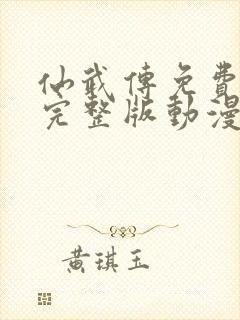 仙武傳免費
完整版動漫
黃琪玉